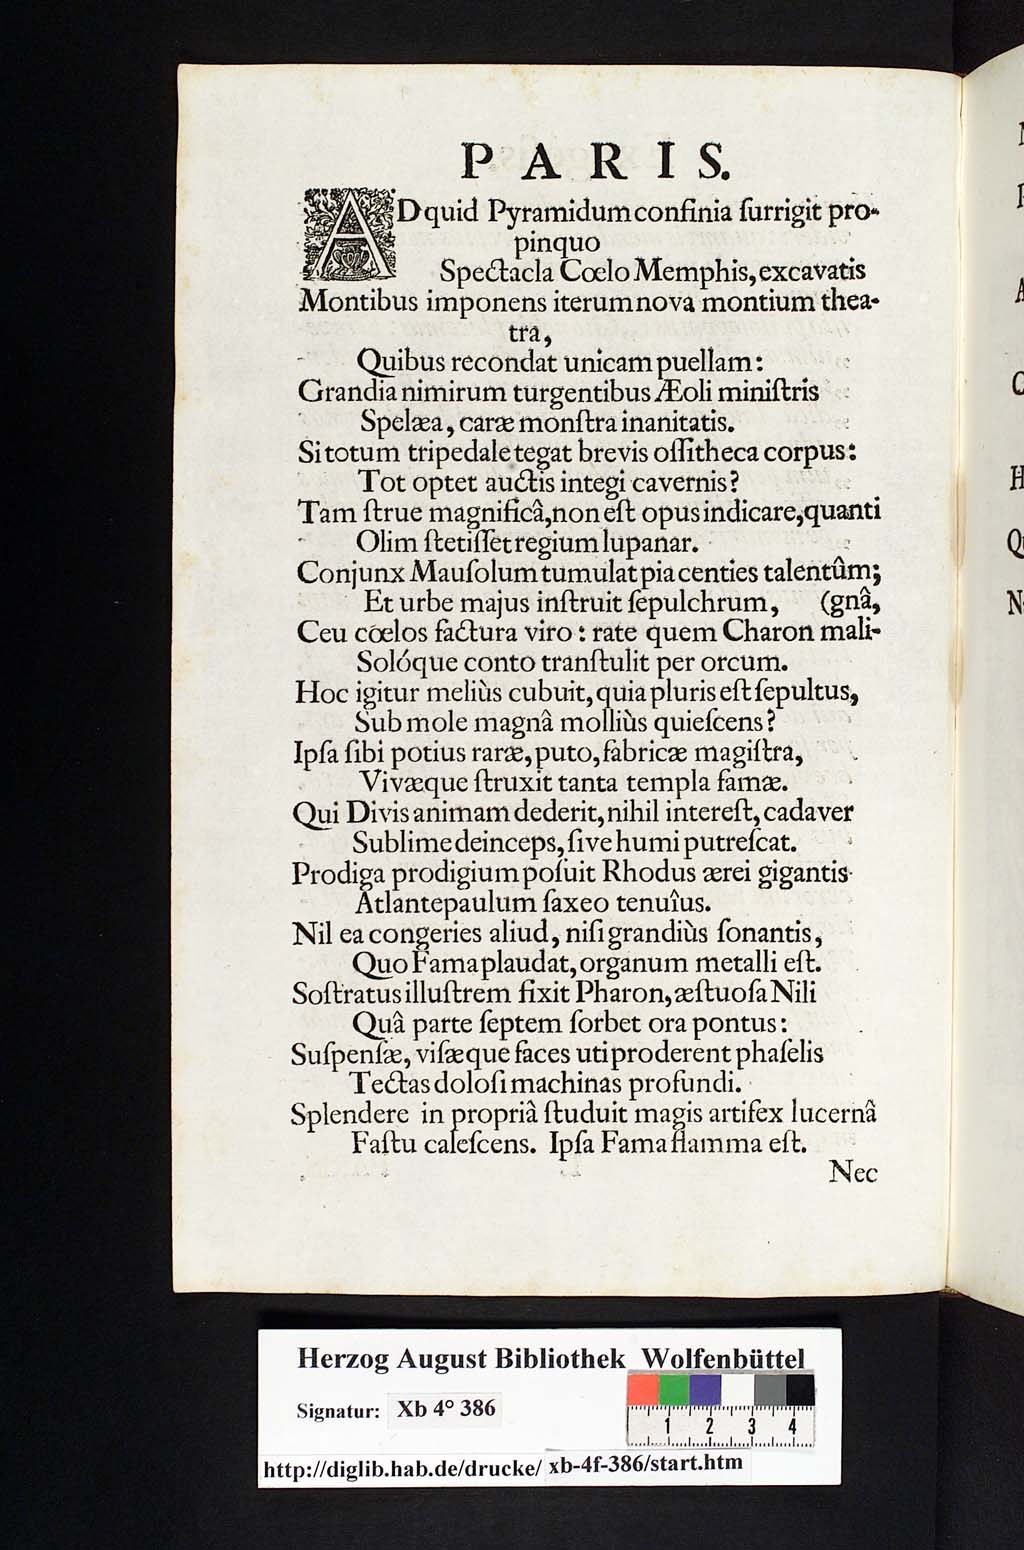 PARIS.
AD quid Pyramidum confinia ſurrigit pro-
pinquo
Spectacla Cœlo Memphis, excavatis
Montibus imponens iterum nova montium thea-
tra,
Quibus recondat unicam puellam:
Grandia nimirum turgentibus Æoli miniſtris
Spelæa, caræ monſtra inanitatis.
Si totum tripedale tegat brevis oſſitheca corpus:
Tot optet auctis integi cavernis?
Tam ſtrue magnificâ, non eſt opus indicare, quanti
Olim ſtetiſſet regium lupanar.
Conjunx Mauſolum tumulat pia centies talentûm;
Et urbe majus inſtruit ſepulchrum, (gnâ,
Ceu cœlos factura viro: rate quem Charon mali-
Solóque conto tranſtulit per orcum.
Hoc igitur meliùs cubuit, quia pluris eſt ſepultus,
Sub mole magnâ molliùs quieſcens?
Ipſa ſibi potius raræ, puto, fabricæ magiſtra,
Vivæque ſtruxit tanta templa famæ.
Qui Divis animam dederit, nihil intereſt, cadaver
Sublime deinceps, ſive humi putreſcat.
Prodiga prodigium poſuit Rhodus ærei gigantis
Atlante paulum ſaxeo tenuîus.
Nil ea congeries aliud, niſi grandiùs ſonantis,
Quo Fama plaudat, organum metalli eſt.
Soſtratus illuſtrem fixit Pharon, æſtuoſa Nili
Quâ parte ſeptem ſorbet ora pontus:
Suſpenſæ, viſæque faces uti proderent phaſelis
Tectas doloſi machinas profundi.
Splendere in propriâ ſtuduit magis artifex lucernâ
Faſtu caleſcens. Ipſa Fama flamma eſt.
Nec
Herzog August Bibliothek Wolfenbüttel
Signatur: Xb 4° 386
1 2 3 4
http://diglib.hab.de/drucke/ xb-4f-386/start.htm